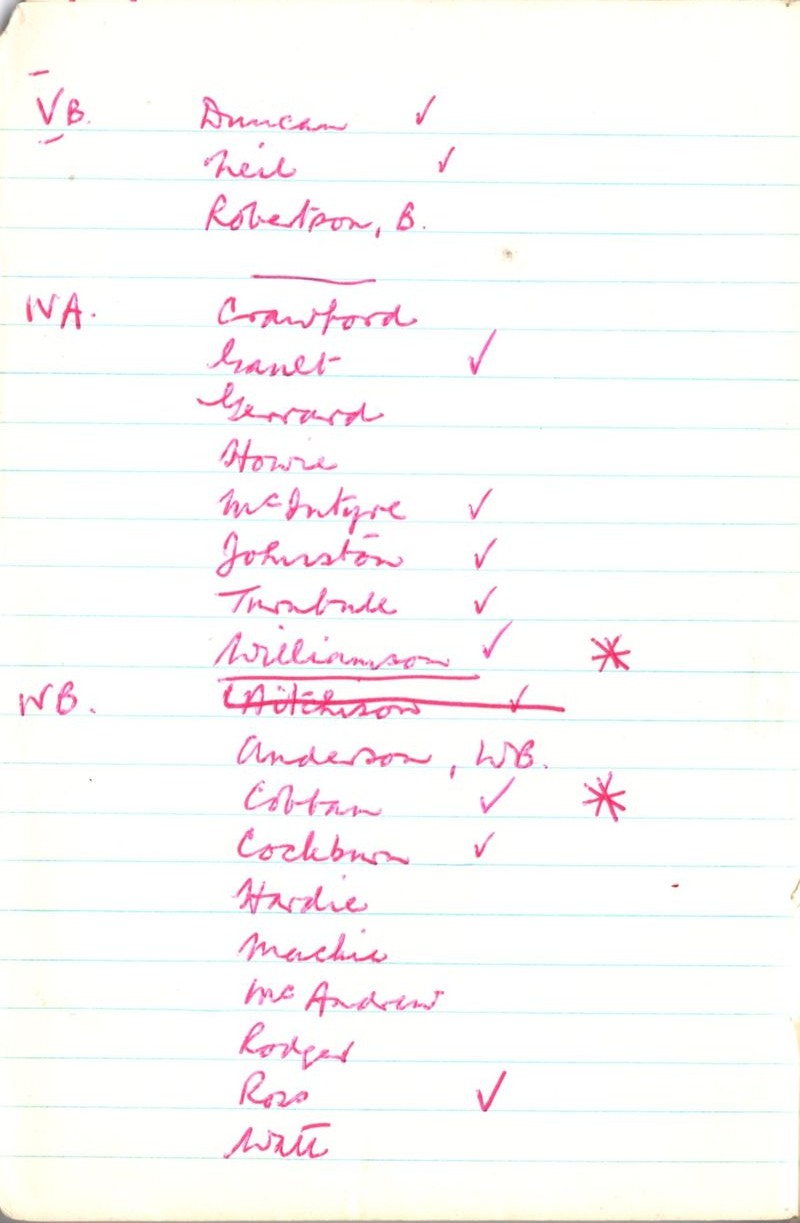 VB. Duncan ✓
Neil ✓
Robertson, B.
IVA. Crawford
Gault ✓
Gerrard
Howie
McIntyre ✓
Johnston ✓
Turnbull ✓
Williamson ✓ *
IVB. Aitchison ✓
Anderson, WB.
Cobban ✓ *
Cockburn ✓
Hardie
Mackie
McAndrew
Rodger
Ross ✓
Watt